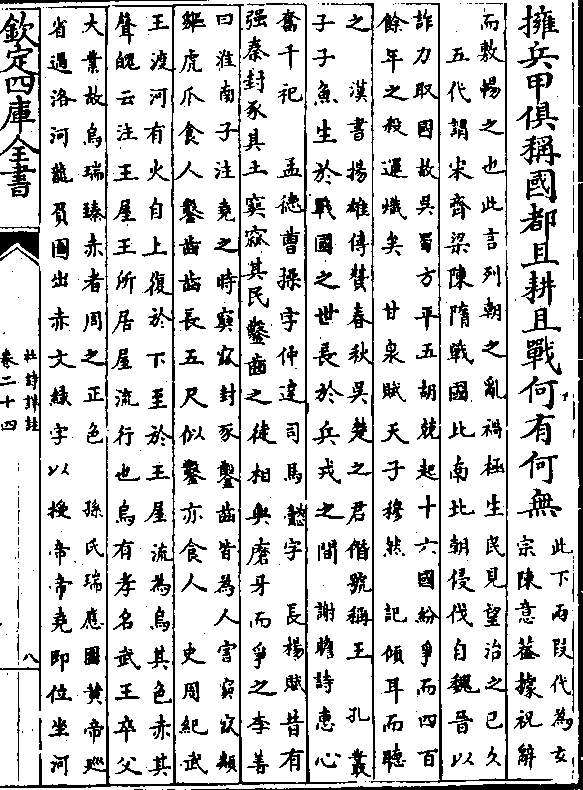 擁兵甲俱稱國都且耕且戰何有何無
此下兩段代為玄
宗陳意蓋據祝辭
而敷暢之也此言列朝之亂禍極生民見望治之已久
五代謂宋齊梁陳隋戰國比南北朝侵伐自魏晉以
詐力取國故吳蜀方平五胡競起十六國紛爭而四百
餘年之殺運熾矣 甘泉賦天子穆然 記傾耳而聽
之 漢書揚雄傳贊春秋吳楚之君僭號稱王 孔叢
子子魚生於戰國之世長於兵戎之間 謝瞻詩惠心
奮千祀 孟德曹操字仲達司馬懿字 長楊賦昔有
强秦封豕其土窫窳其民鑿齒之徒相與磨牙而爭之李善
曰淮南子注堯之時窫窳封豕鑿齒皆為人害窫窳類
貙虎爪食人鑿齒齒長五尺似鑿亦食人 史周紀武
王渡河有火自上復於下至於王屋流為烏其色赤其
聲魄云注王屋王所居屋流行也烏有孝名武王卒父
大業故烏瑞臻赤者周之正色 孫氏瑞應圖黄帝廵
省過洛河龍負圖出赤文綠字以授帝帝堯即位坐河
欽定四庫全書
杜詩詳註
卷二十四
八